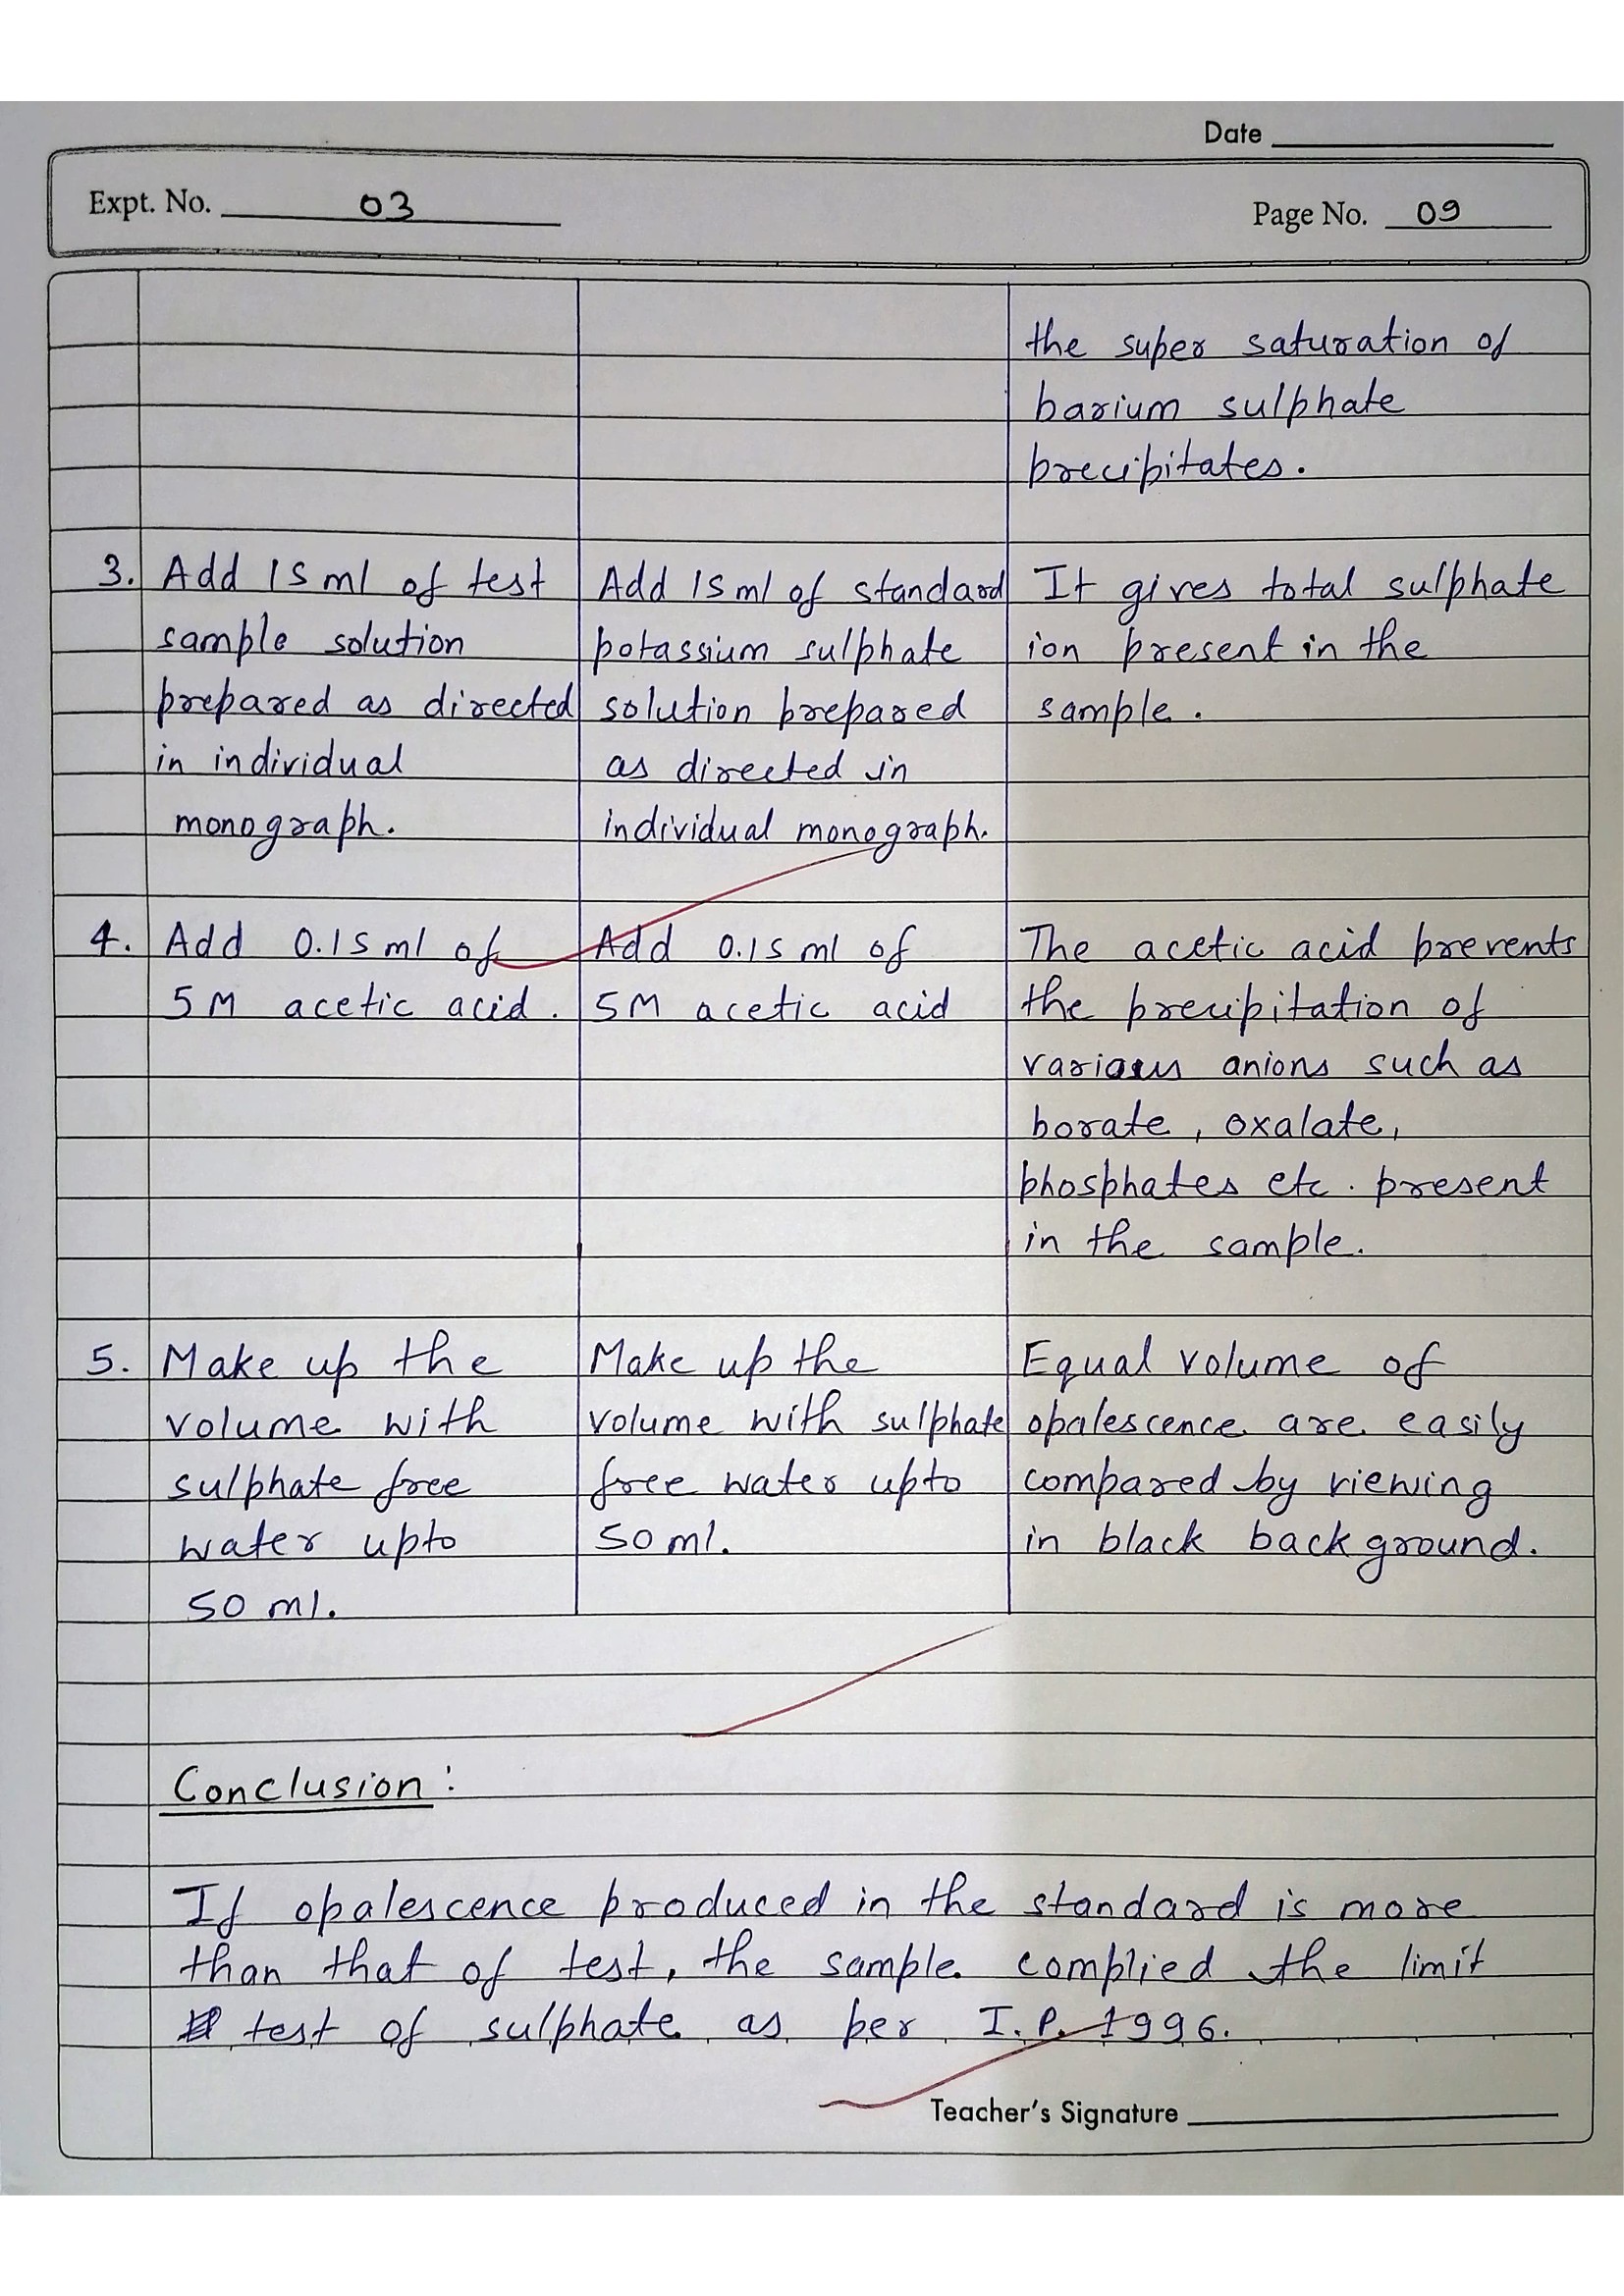 Date
Expt. No. 03
Page No. 09
the super saturation of
barium sulphate
precipitates.
3. Add 15 ml of test
sample solution
prepared as directed
in individual
monograph.
Add 15 ml of standard
potassium sulphate
solution prepared
as directed in
individual monograph.
It gives total sulphate
ion present in the
sample.
4. Add 0.15 ml of
5 M acetic acid.
Add 0.15 ml of
5M acetic acid
The acetic acid prevents
the precipitation of
various anions such as
borate, oxalate,
phosphates etc. present
in the sample.
5. Make up the
volume with
sulphate free
water upto
50 ml.
Make up the
volume with sulphate
free water upto
50 ml.
Equal volume of
opalescence are easily
compared by viewing
in black background.
Conclusion:
If opalescence produced in the standard is more
than that of test, the sample complied the limit
test of sulphate as per I.P. 1996.
Teacher's Signature